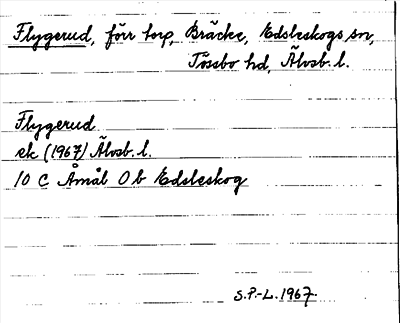 Flygerud, förr torp, Bräcke, Edsleskogs sn,
Tössbo hd, Älvsb. l.
Flygerud
ek (1967) Älvsb. l.
10 C Åmål O b Edsleskog
S.P.-L. 1967.